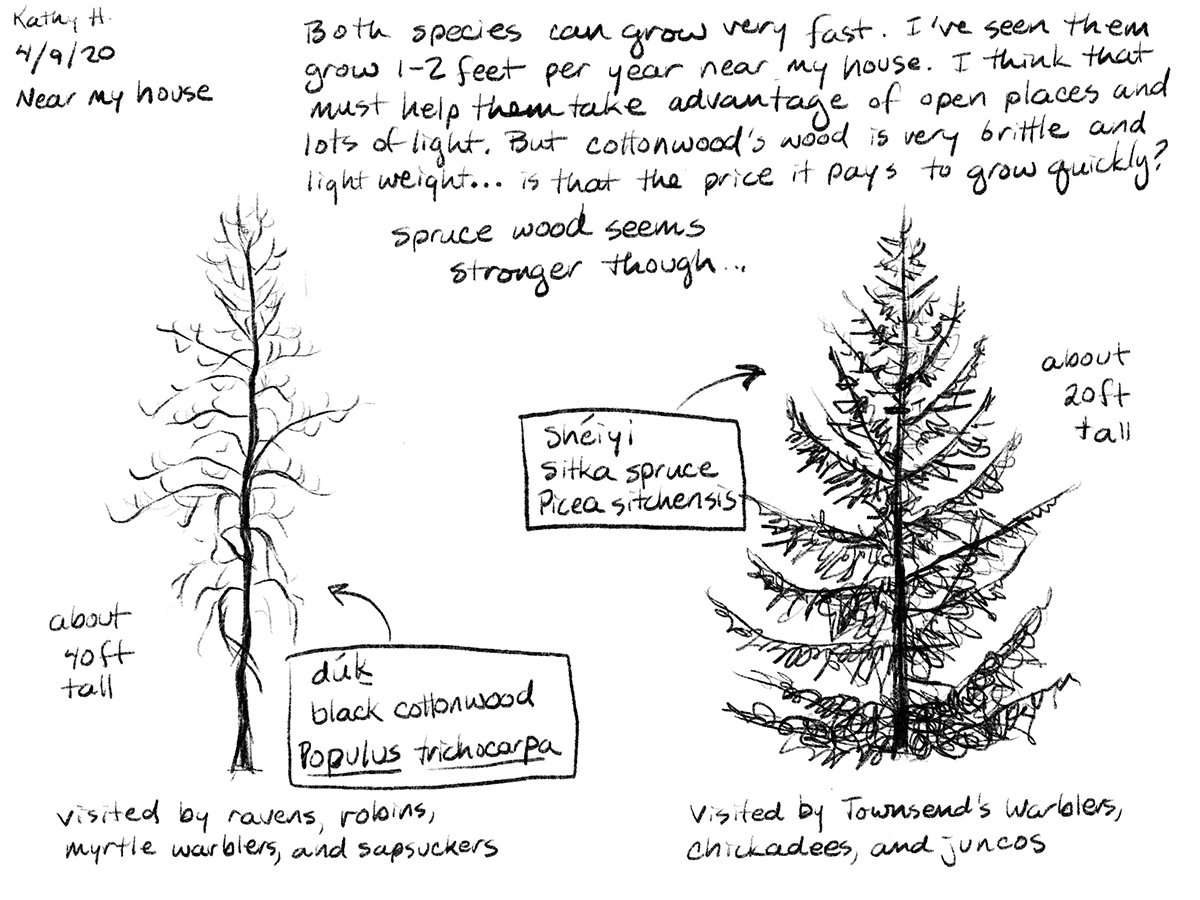 Kathy H.
4/9/20
Near my house
Both species can grow very fast. I've seen them
grow 1-2 feet per year near my house. I think that
must help them take advantage of open places and
lots of light. But cottonwood's wood is very brittle and
light weight... is that the price it pays to grow quickly?
spruce wood seems
stronger though...
about
20ft
tall
shéiyi
sitka spruce
Picea sitchensis
about
40ft
tall
dúḵ
black cottonwood
Populus trichocarpa
visited by ravens, robins,
myrtle warblers, and sapsuckers
visited by Townsend's Warblers,
chickadees, and juncos